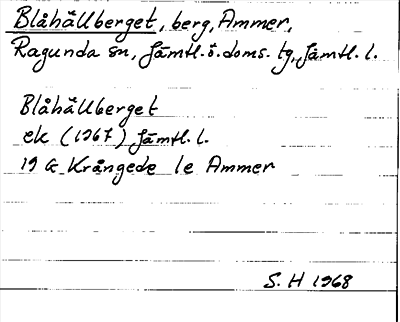 Blåhällberget, berg, Ammer,
Ragunda sn, Jämtl. ö. doms. tg, Jämtl. l.
Blåhällberget
ek (1967) Jämtl. l.
19 G Krångede 1e Ammer
S. H 1968